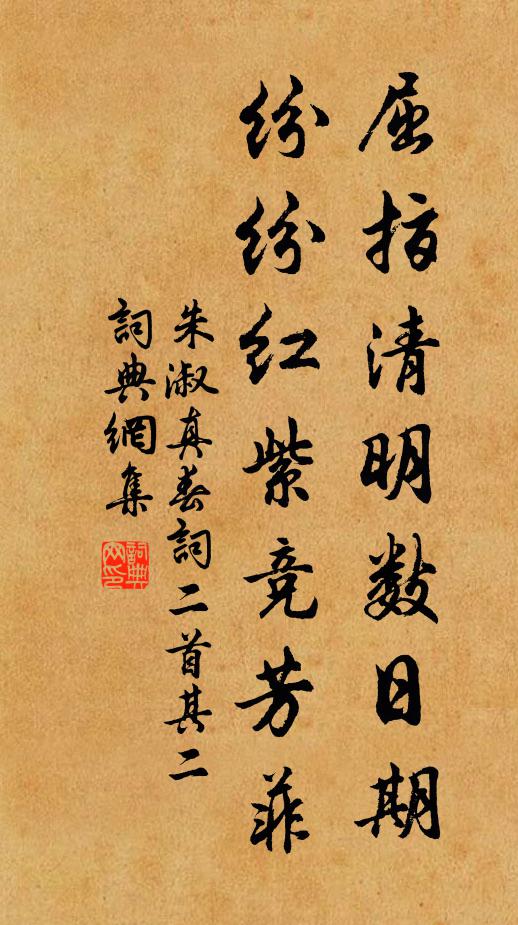 屈指清明数日期
纷纷红紫竞芳菲
朱淑真春詞二首其二
詞典網集
詞典
网印